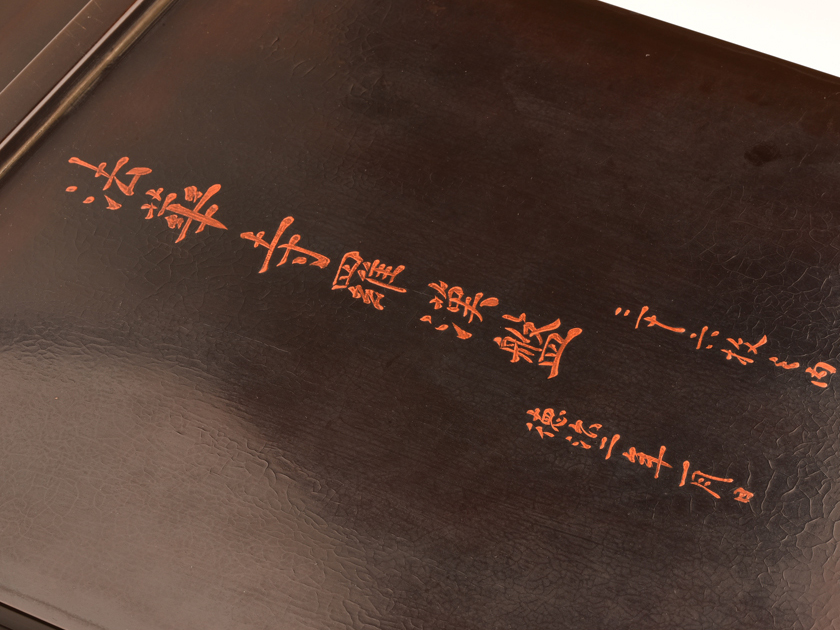 法華寺羅漢盤
三十六枚之内
德治二年一月日